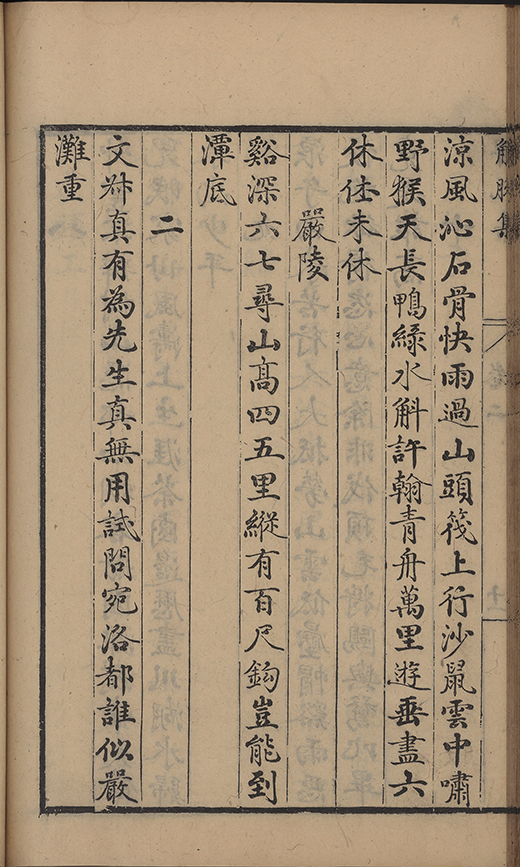 解脫集
卷二
涼風沁石骨快雨過山頭筏上行沙鼠雲中嘯
野猴天長鴨綠水斛許翰青舟萬里遊垂盡六
休仕未休
嚴陵
谿深六七尋山髙四五里縱有百尺鈎豈能到
潭底
二
文叔真有為先生真無用試問宛洛都誰似嚴
灘重